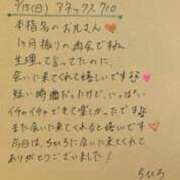 7/13(日) アネックス710
本指名のお兄さん♡
1ヶ月振りの再会ですね
生理って言ってたのに
会いに来てくれて嬉しいです
短い時間だったけど、いっぱい
イチャイチャできて楽しかったです
また会いに来てくれると嬉しいです
本日は、ちひろに会いに来てくれて
ありがとうございました!
ちひろ